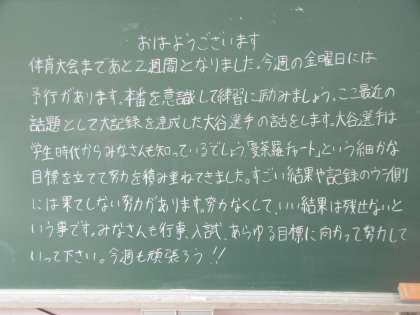 おはようございます
体育大会まであと2週間となりました。今週の金曜日には
予行があります。本番を意識して練習に励みましょう。ここ最近の
話題として大記録を達成した大谷選手の話をします。大谷選手は
学生時代からみなさんも知っているでしょう「曼荼羅チャート」という細かな
目標を立てて努力を積み重ねてきました。すごい結果や記録のウラ側
には果てしない努力があります。努力なくして、いい結果は残せないと
いう事です。みなさんも行事、入試、あらゆる目標に向かって努力して
いって下さい。今週も頑張ろう!!